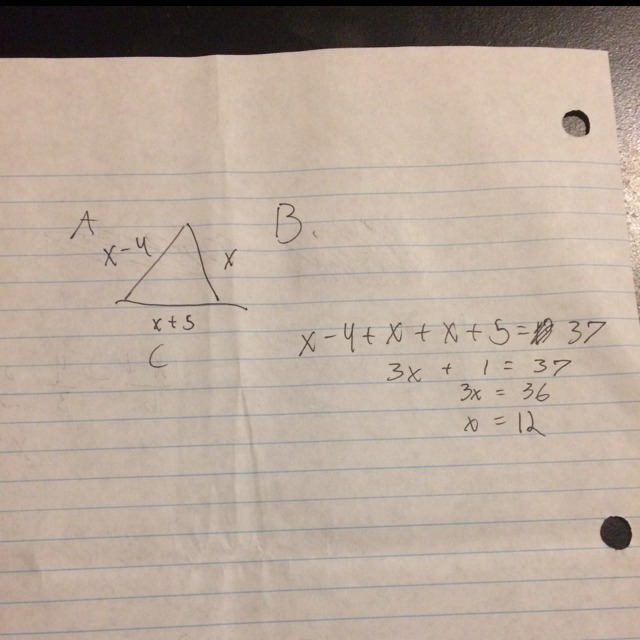 A
B.
x-4
x
x+5
C
x-4+x+x+5= 37
3x + 1 = 37
3x = 36
x = 12